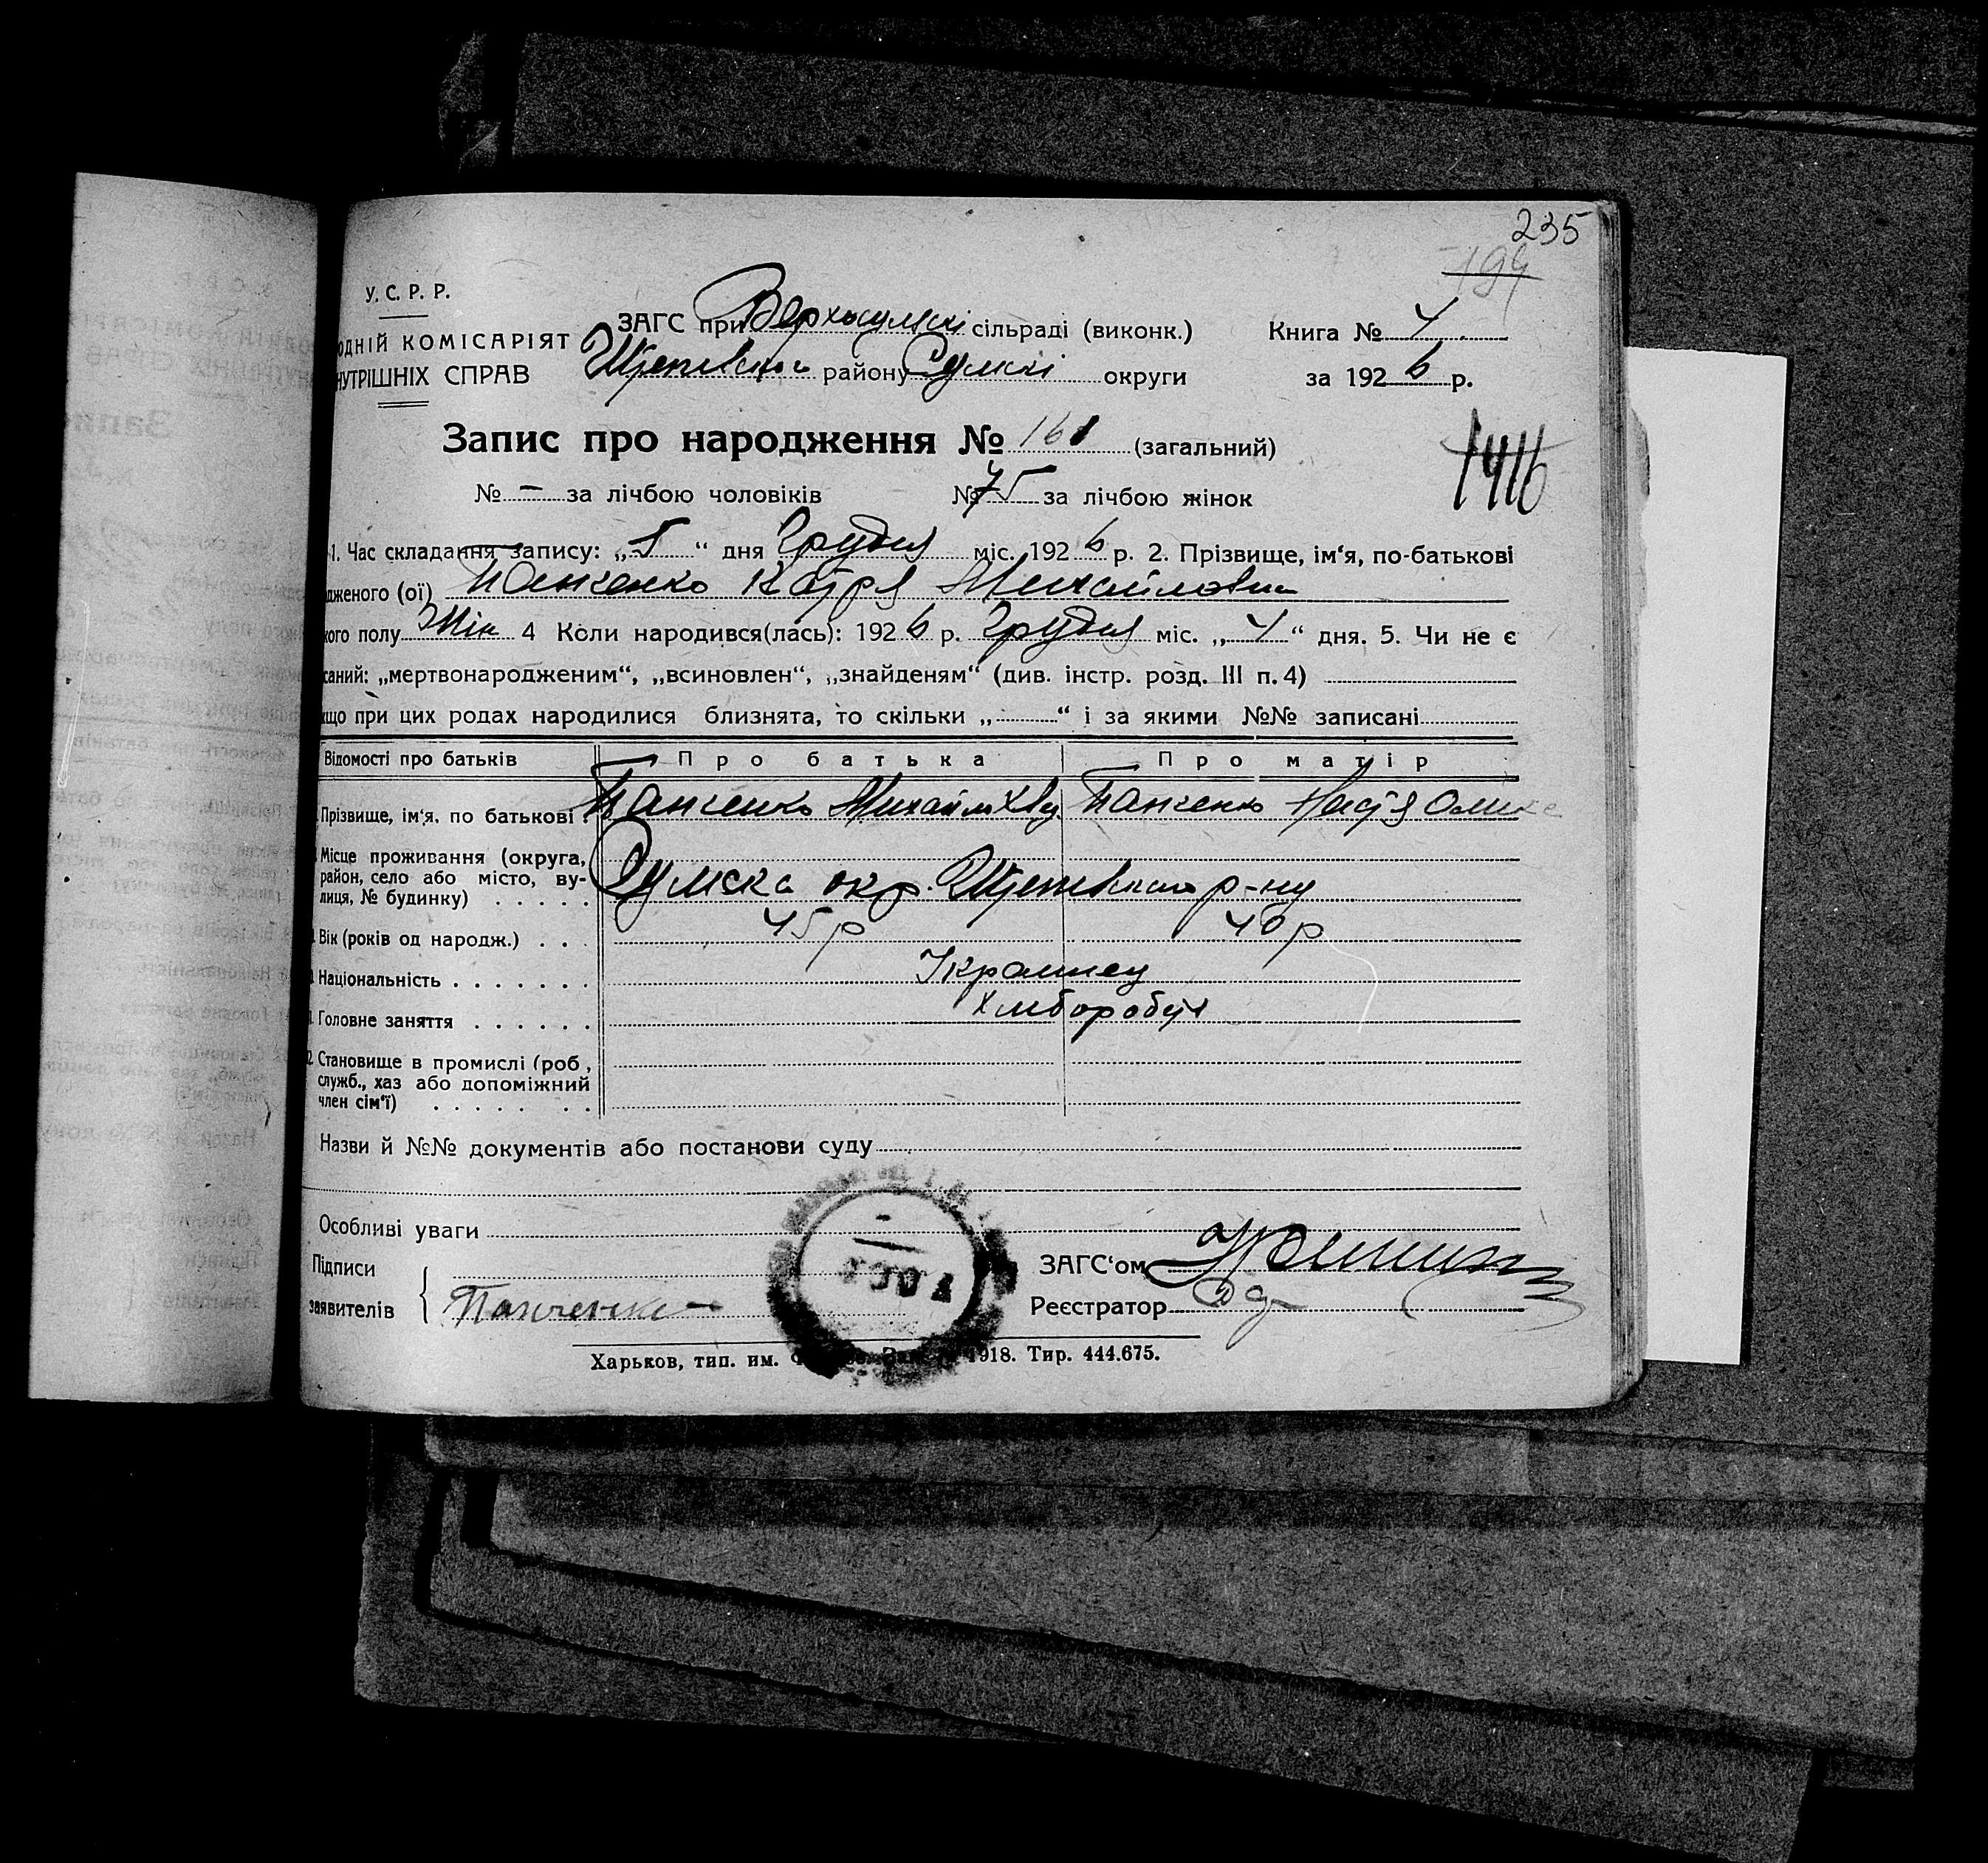 235
199
У. С. Р. Р.
ОДНІЙ КОМІСАРІЯТ
НУТРІШНІХ СПРАВ
ЗАГС при Верхосулскі сільраді (виконк.)
району Сумскі округи
Книга № 4
за 1926 р.
Запис про народження № 161 (загальний)
1416
№ — за лічбою чоловіків № 75 за лічбою жінок
1. Час складання запису: „5“ дня Грудня міс. 1926 р. 2. Прізвище, ім‘я, по-батькові
дженого (ої) Панченко Катря Михайловна
кого полу Жін 4 Коли народився(лась): 1926 р. Грудня міс. „4“ дня. 5. Чи не є
саний: „мертвонародженим“, „всиновлен“, „знайденям“ (див. інстр. розд. III п. 4)
кщо при цих родах народилися близнята, то скільки „ “ і за якими №№ записані
Відомості про батьків Про батька Про матір
Прізвище, ім‘я, по батькові Панченко Михайло Панченко Настя
Місце проживання (округа,
район, село або місто, ву-
лиця, № будинку)
Сумска окр. р-ну
Вік (років од народж.) 45 р 40 р
Національність Украинец
Головне заняття Хлиборобув
2. Становище в промислі (роб,
служб., хаз або допоміжний
член сім‘ї)
Назви й №№ документів або постанови суду
Особливі уваги
Підписи
заявителів Панченко
ЗАГС‘ом
Реєстратор
Харьков, тип. им. 1918. Тир. 444.675.